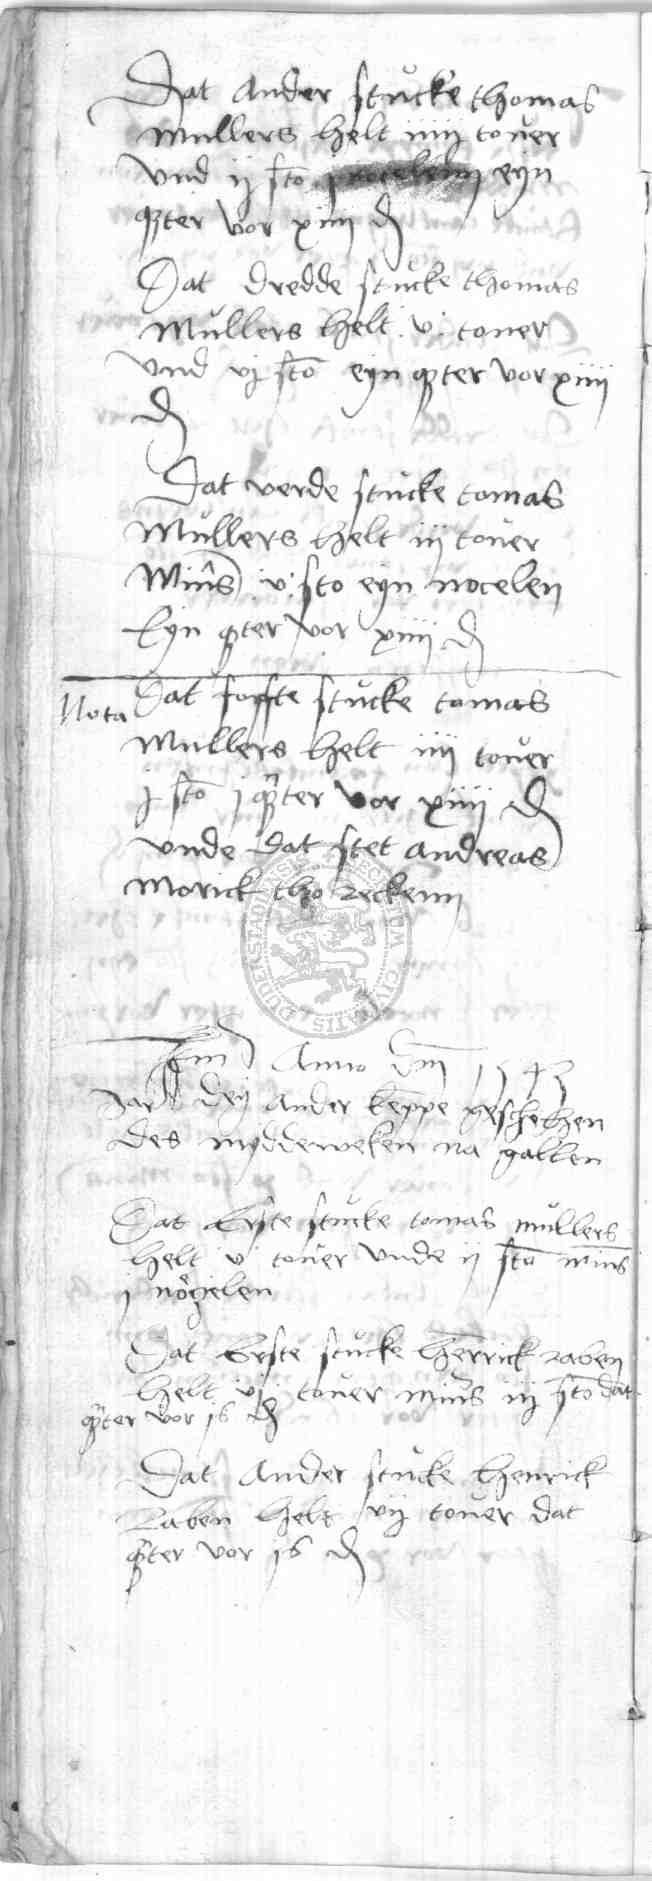 Dat ander stucke thomas
mullers helt iiiij tover
vnd ij sto eyn
qrter vor xiiij d
Dat dredde stucke thomas
mullers helt v toner
vnd vj sto eyn qrter vor xiiij
d
Dat verde stucke tomas
mullers helt iij tover
Mins v sto eyn nocelen
Eyn qrter vor xiiij d
Nota Dat foffte stucke tomas
mullers helt iiij tover
j sto j qrter vor xiiij d
vnde dat stet andreas
morick tho reckenn
Anno dm 1543
Jar dey ander keppe geschehen
des mydderweken na gallen
Dat Erste stucke tomas mullers
helt v tover vnde ij sto mins
j nögelen
Dat Erste stucke henrick raben
helt vj tover mins iij sto dat
qrter vor 16 d
Dat ander stucke henrick
Raben helt vij tover dat
qrter vor 16 d